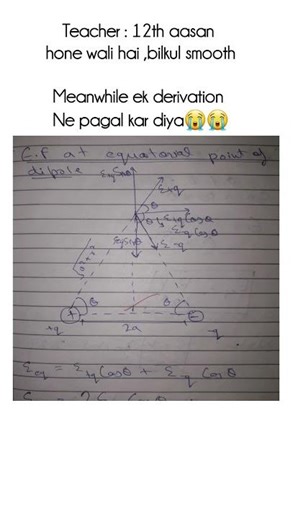 Teacher : 12th aasan
hone wali hai ,bilkul smooth
Meanwhile ek derivation
Ne pagal kar diya😭😭
E.F at equatorial point of
dipole
E+q
θ
E+q Cosθ
E-q Cosθ
E-q
θ
θ
+
-
+q
2a
-q
Eeq = E+q Cosθ + E-q Cosθ